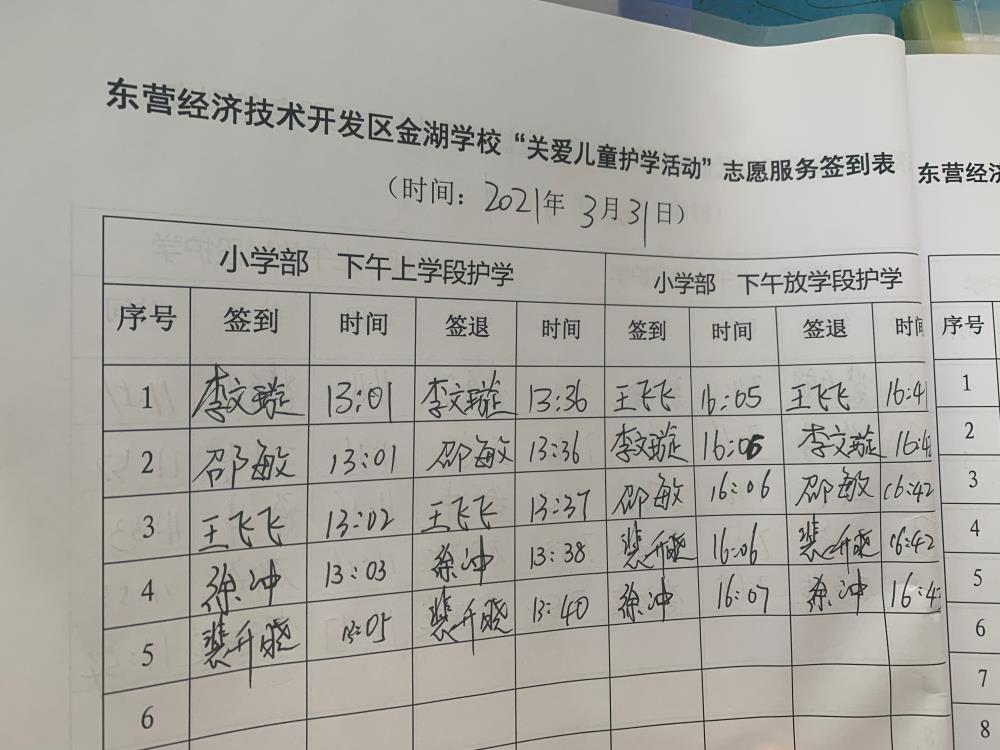 东营经济技术开发区金湖学校“关爱儿童护学活动”志愿服务签到表
（时间：2021年 3月31日）
小学部 下午上学段护学 小学部 下午放学段护学
序号 签到 时间 签退 时间 签到 时间 签退 时间
1 李文璇 13:01 李文璇 13:36 王飞飞 16:05 王飞飞 16:41
2 邵敏 13:01 邵敏 13:36 李文璇 16:06 李文璇 16:4
3 王飞飞 13:02 王飞飞 13:37 邵敏 16:06 邵敏 16:42
4 徐冲 13:03 徐冲 13:38 裴升晓 16:06 裴升晓 16:42
5 裴升晓 13:05 裴升晓 13:40 徐冲 16:07 徐冲 16:4
6
东营经济
序号
1
2
3
4
5
6
7
8